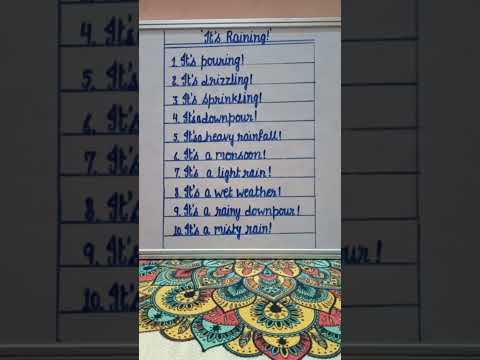 'It's Raining!'
1. It's pouring!
2. It's drizzling!
3. It's sprinkling!
4. It's a downpour!
5. It's a heavy rainfall!
6. It's a monsoon!
7. It's a light rain!
8. It's a wet weather!
9. It's a rainy downpour!
10. It's a misty rain!